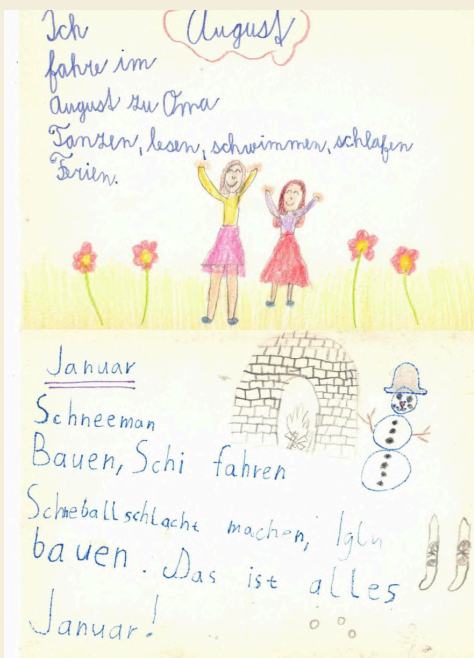 August
Ich
fahre im
August zu Oma
Tanzen, lesen, schwimmen, schlafen
Ferien.
Januar
Schneeman
Bauen, Schi fahren
Schneballschlacht machen, Iglu
bauen. Das ist alles
Januar!